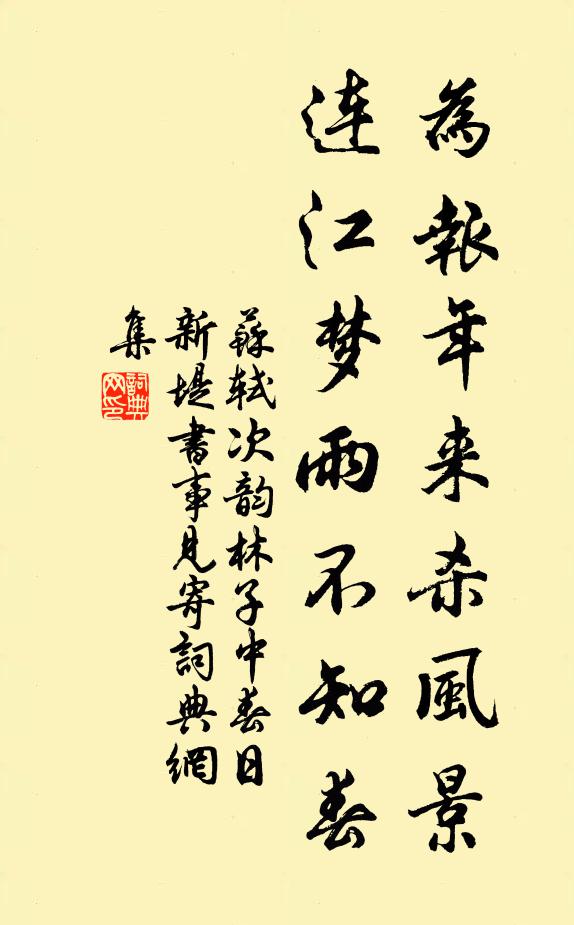 為報年来杀風景
連江梦雨不知春
蘇軾次韵林子中春日
新堤書事見寄詞典網
集
詞典
网印